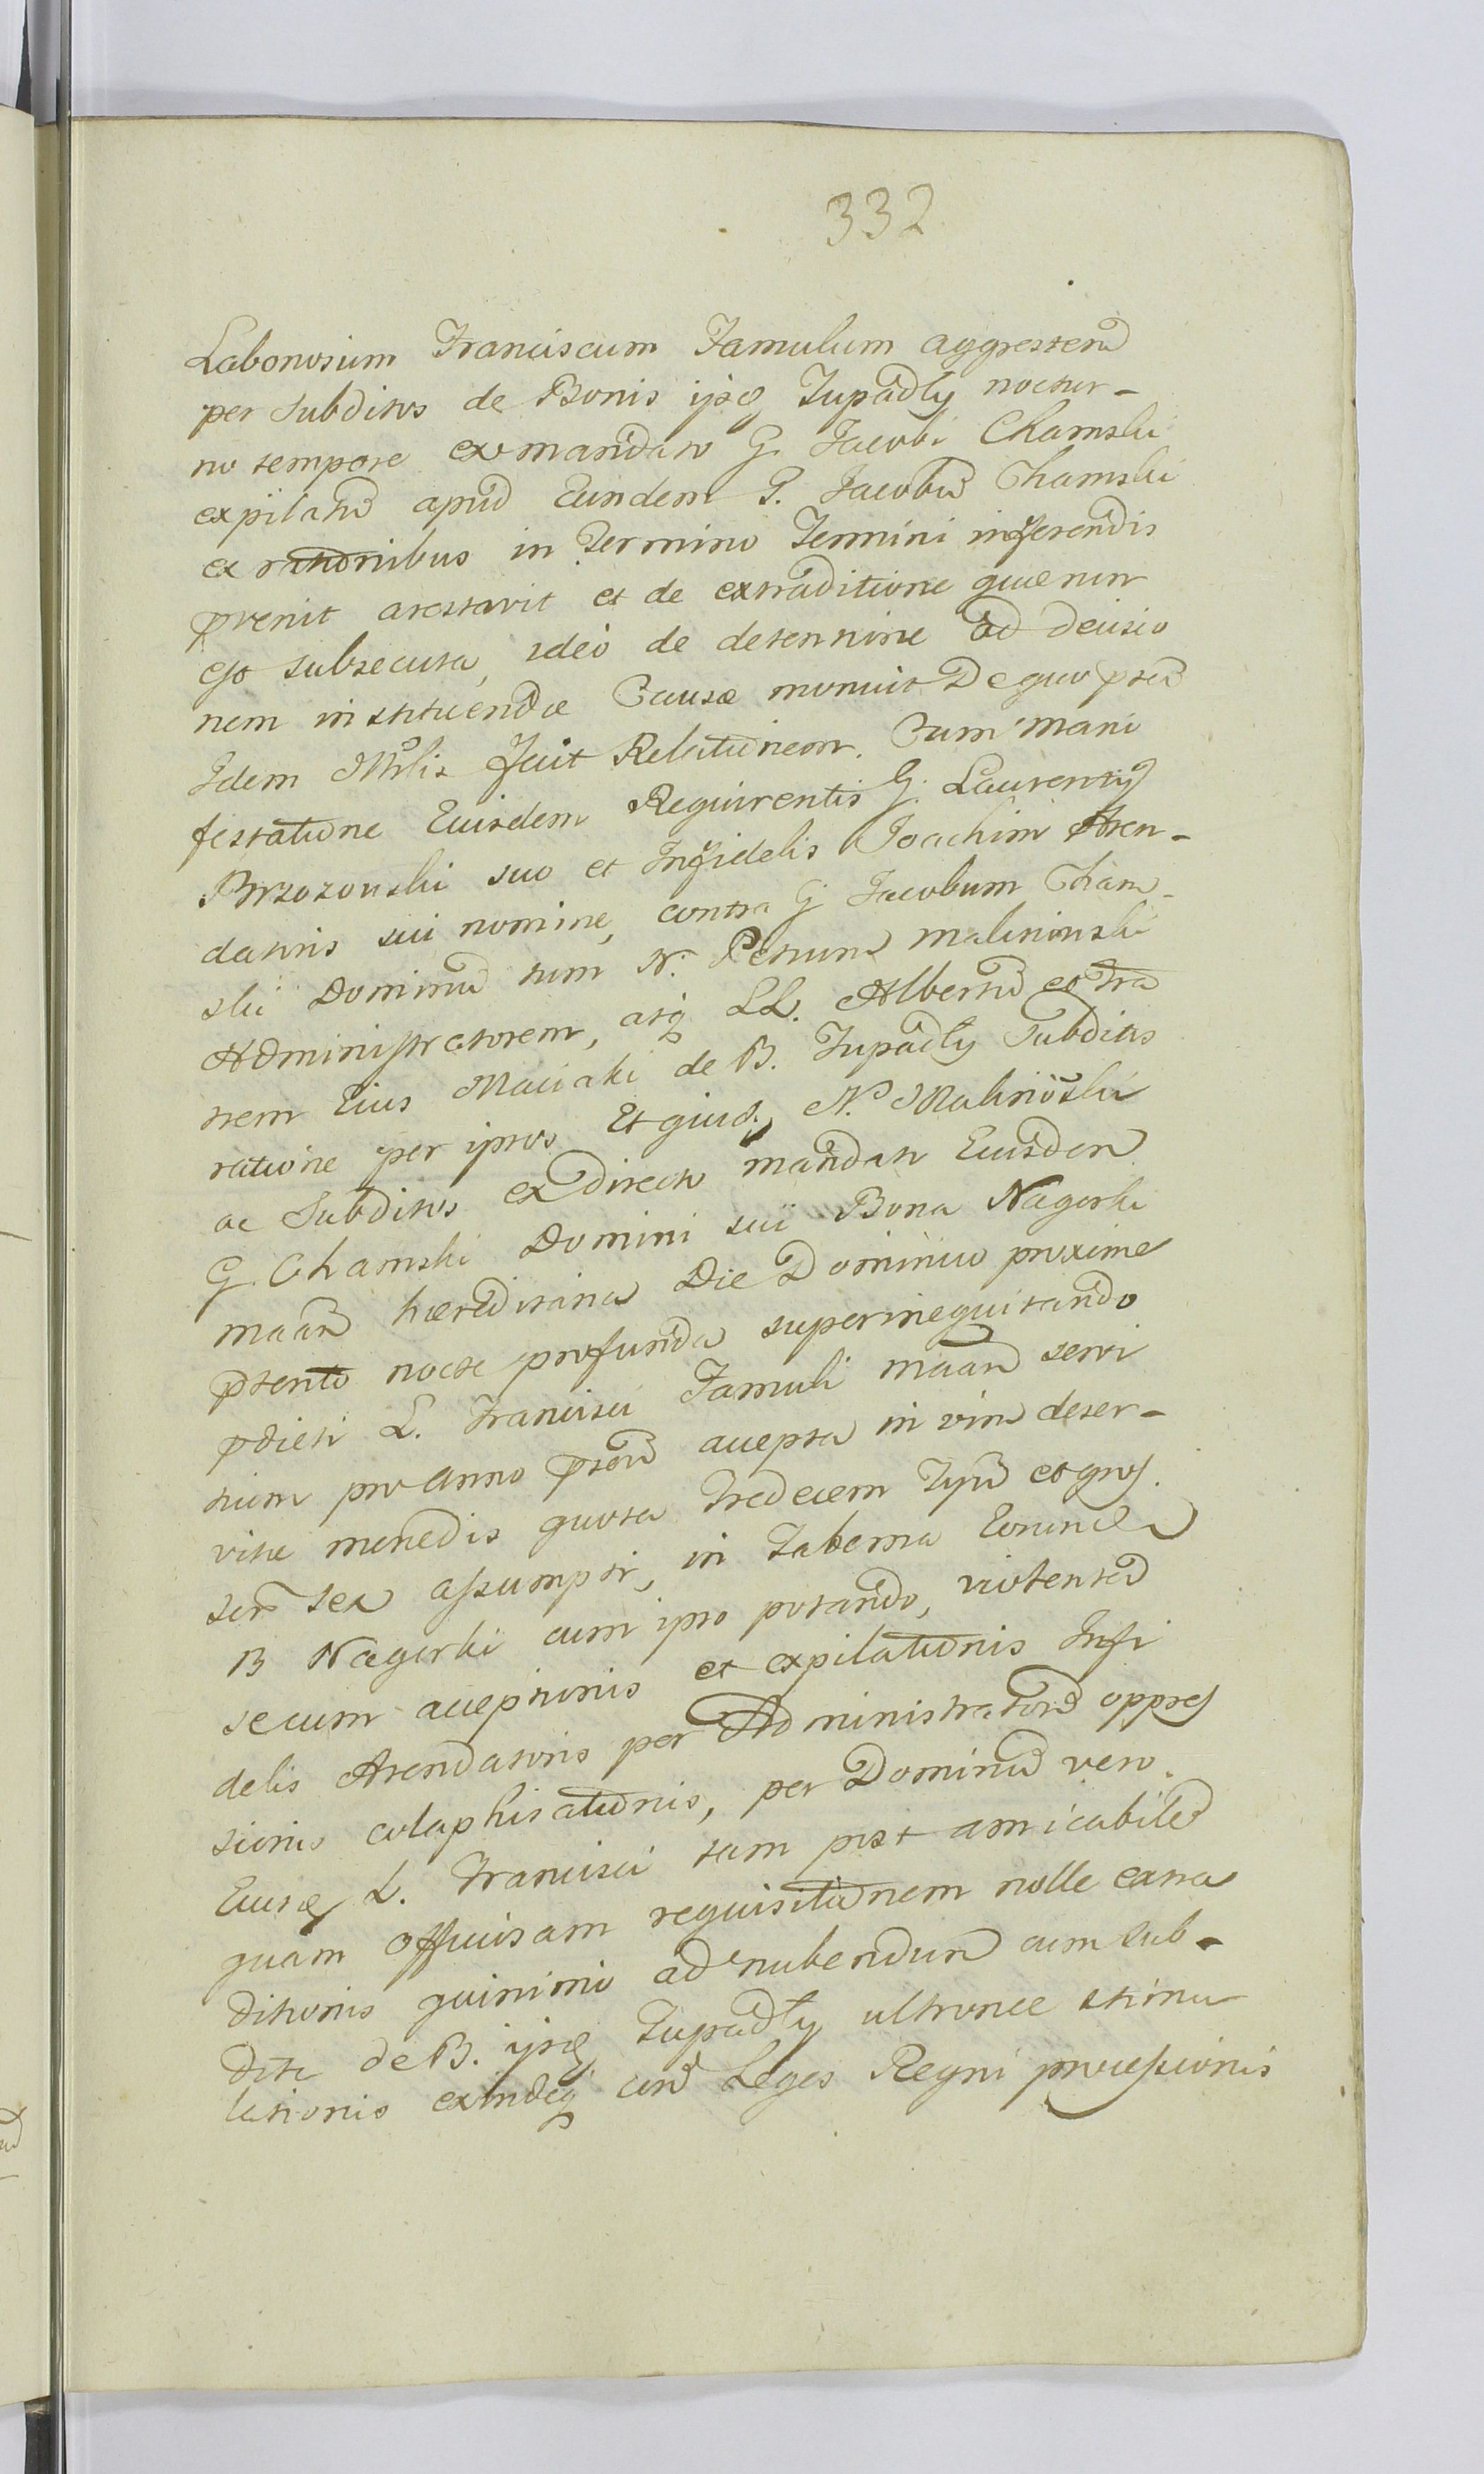 332
Laboriosum Franciscum Famulum aggressend
per subditos de Bonis ijsq Tupadły noctur-
no tempore ex mandato G. Jacobi Chamski
expilatu apud Eundem G. Jacobu Chamski
ex rationibus in Termino Termini inferendis
pvenit arestavit et de extraditione quæ non
est subsecuta, ideo de detentione ad decisio
nem instituendæ Causæ monuit De quo pten
Idem Mlis fecit Relationem. Cum mani
festatione Eiusdem Requirentis G. Laurentij
Brzozowski suo et Infidelis Joachim Aren-
datoris sui nomine, contra G Jacobum Cham-
ski Dominu tum N. Petrum Malinowski
Administratorem, atq LL. Albertu et Fra
trem Eius Maciaki de B. Tupadły Subditos
ratione per ipsos Et quid. N. Malinoski
ac Subditos ex directo mandato Eiusdem
G. Chamski Domini sui Bona Nagorki
maan hæreditaria Die Dominico proxime
pterito nocte profunda superinequitando
pdicti L. Francisci Famuli maan servi
tium pro Anno pten accepta in vim deser-
vitæ mercedis quota Tredecem Tyn et gros.
sex assumpti, in Taberna Eorund
B Nagorki cum ipso potando, violented
secum acceptionis et expilationis Infi
delis Arendatoris per Administratore oppres
sionis colaphisationis, per Dominu vero
Eiusd L. Francisci tam post amicabile
quam officiosam requisitionem nolle extra
ditionis quinimo ad nubendum cum sub-
dita de B. ijsq Tupadły ultronee stimu
lationis exindeq cird Leges Regni processionis